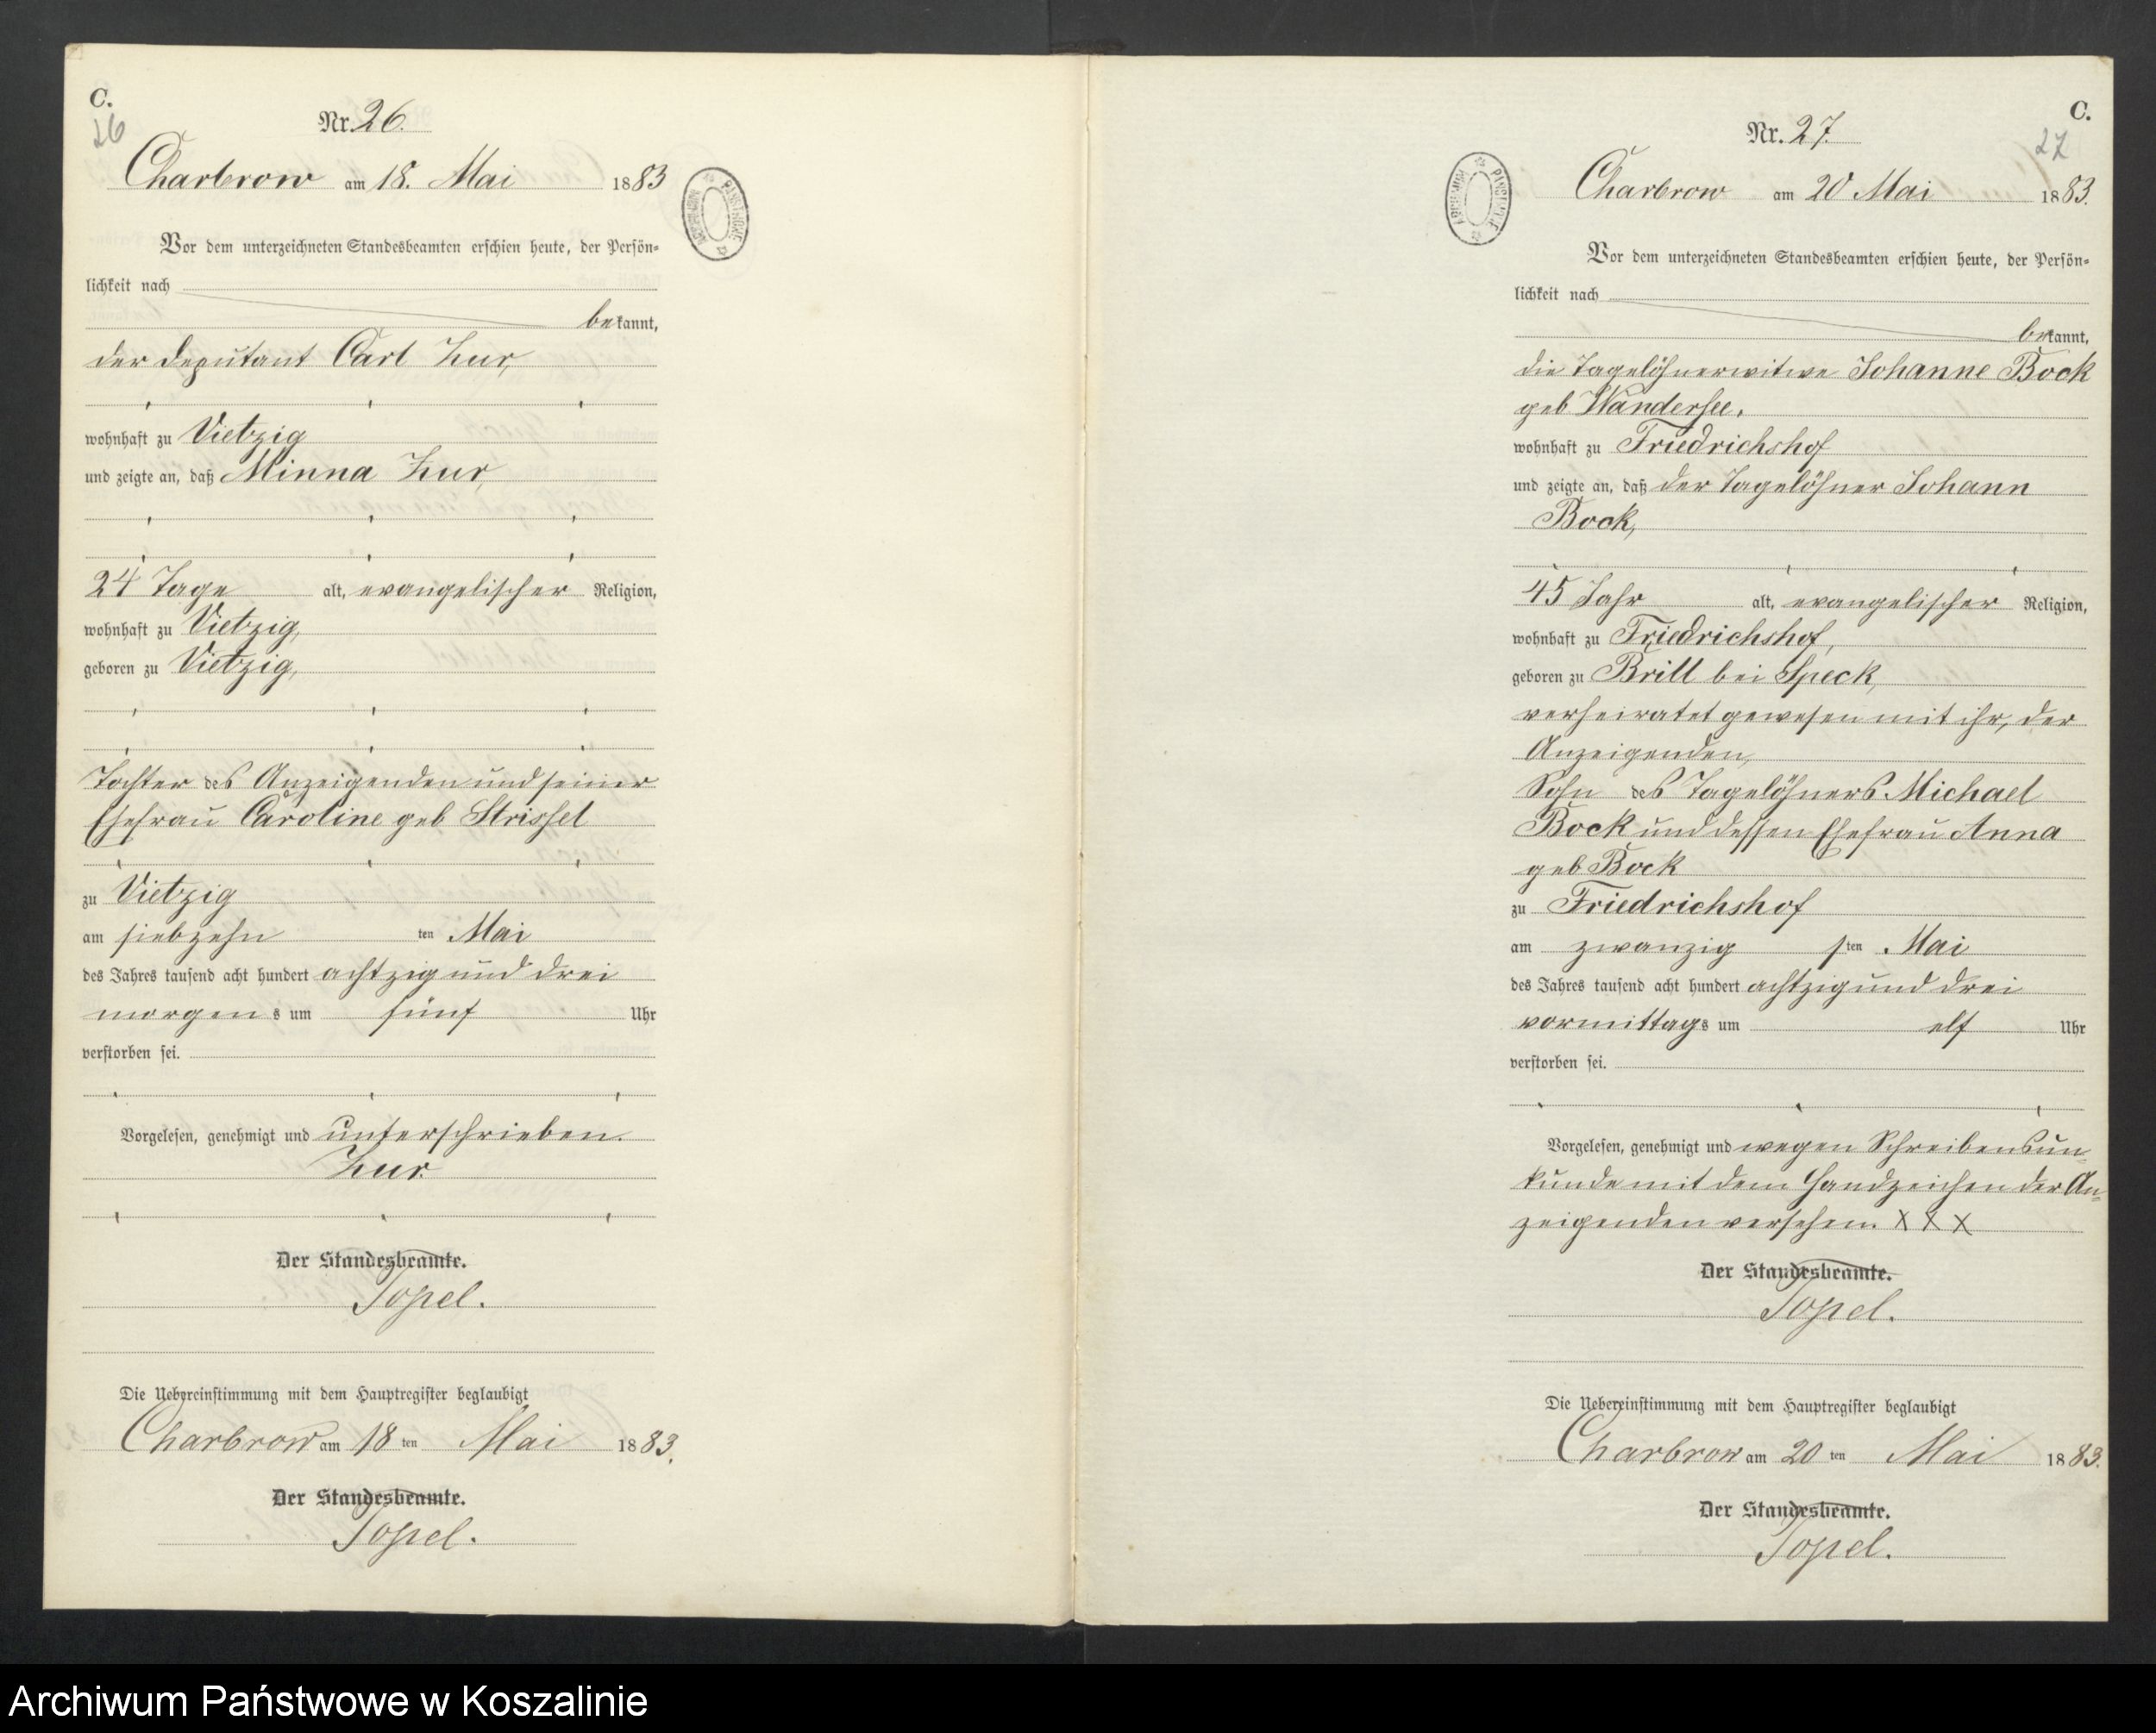 C.
26
Nr. 26.
Charbrow am 18. Mai 1883
Vor dem unterzeichneten Standesbeamten erschien heute, der Persön-
lichkeit nach
bekannt,
der Deputant Carl Zur,
wohnhaft zu Vietzig
und zeigte an, daß Minna Zur,
24 Tage alt, evangelischer Religion,
wohnhaft zu Vietzig,
geboren zu Vietzig,
Tochter des Anzeigenden und seiner
Ehefrau Caroline geb Strissel
zu Vietzig
am siebzehn ten Mai
des Jahres tausend acht hundert achtzig und drei
morgens um fünf Uhr
verstorben sei.
Vorgelesen, genehmigt und unterschrieben.
Zur.
Der Standesbeamte.
Topel.
Die Uebereinstimmung mit dem Hauptregister beglaubigt
Charbrow am 18ten Mai 1883.
Der Standesbeamte.
Topel.
ARCHIWUM PAŃSTWOWE
C.
27
Nr. 27.
Charbrow am 20 Mai 1883.
Vor dem unterzeichneten Standesbeamten erschien heute, der Persön-
lichkeit nach
bekannt,
die Tagelöhnerwitwe Johanne Bock
geb Wandersee,
wohnhaft zu Friedrichshof
und zeigte an, daß der Tagelöhner Johann
Bock,
45 Jahr alt, evangelischer Religion,
wohnhaft zu Friedrichshof,
geboren zu Brill bei Speck,
verheiratet gewesen mit ihr, der
Anzeigenden,
Sohn des Tagelöhners Michael
Bock und dessen Ehefrau Anna
geb Bock
zu Friedrichshof
am zwanzigsten Mai
des Jahres tausend acht hundert achtzig und drei
vormittags um elf Uhr
verstorben sei.
Vorgelesen, genehmigt und wegen Schreibensun-
kunde mit dem Handzeichen der An-
zeigenden versehen. X X X
Der Standesbeamte.
Topel.
Die Uebereinstimmung mit dem Hauptregister beglaubigt
Charbrow am 20ten Mai 1883.
Der Standesbeamte.
Topel.
ARCHIWUM PAŃSTWOWE
Archiwum Państwowe w Koszalinie